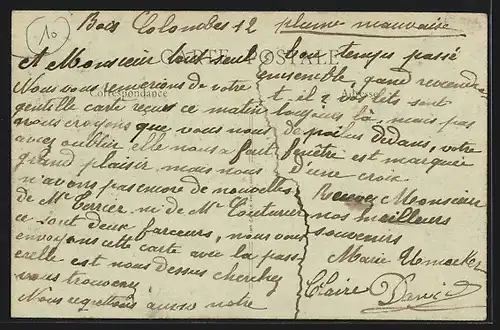 10
Bois Colombes 12 plume mauvaise
CARTE POSTALE
Correspondance
Adresse
A Monsieur tout seul
Nous vous remercions de votre
gentille carte reçue ce matin
nous croyons que vous nous
aviez oublier elle nous a fait
grand plaisir mais nous
n'avons pas encore de nouvelles
de Mr Terrier ni de Mr Couturier
ce sont deux farceurs, nous vous
envoyons cette carte avec la pass
erelle est nous dessus cherchez
vous trouverez
Nous regrettons aussi notre
bon temps passé
ensemble, quand reviendra
t il, vos lits sont
toujours là, mais pas
de poilus dedans, votre
fenêtre est marquée
d'une croix
Recevez Monsieur
nos meilleurs
souvenirs
Marie
Claire David